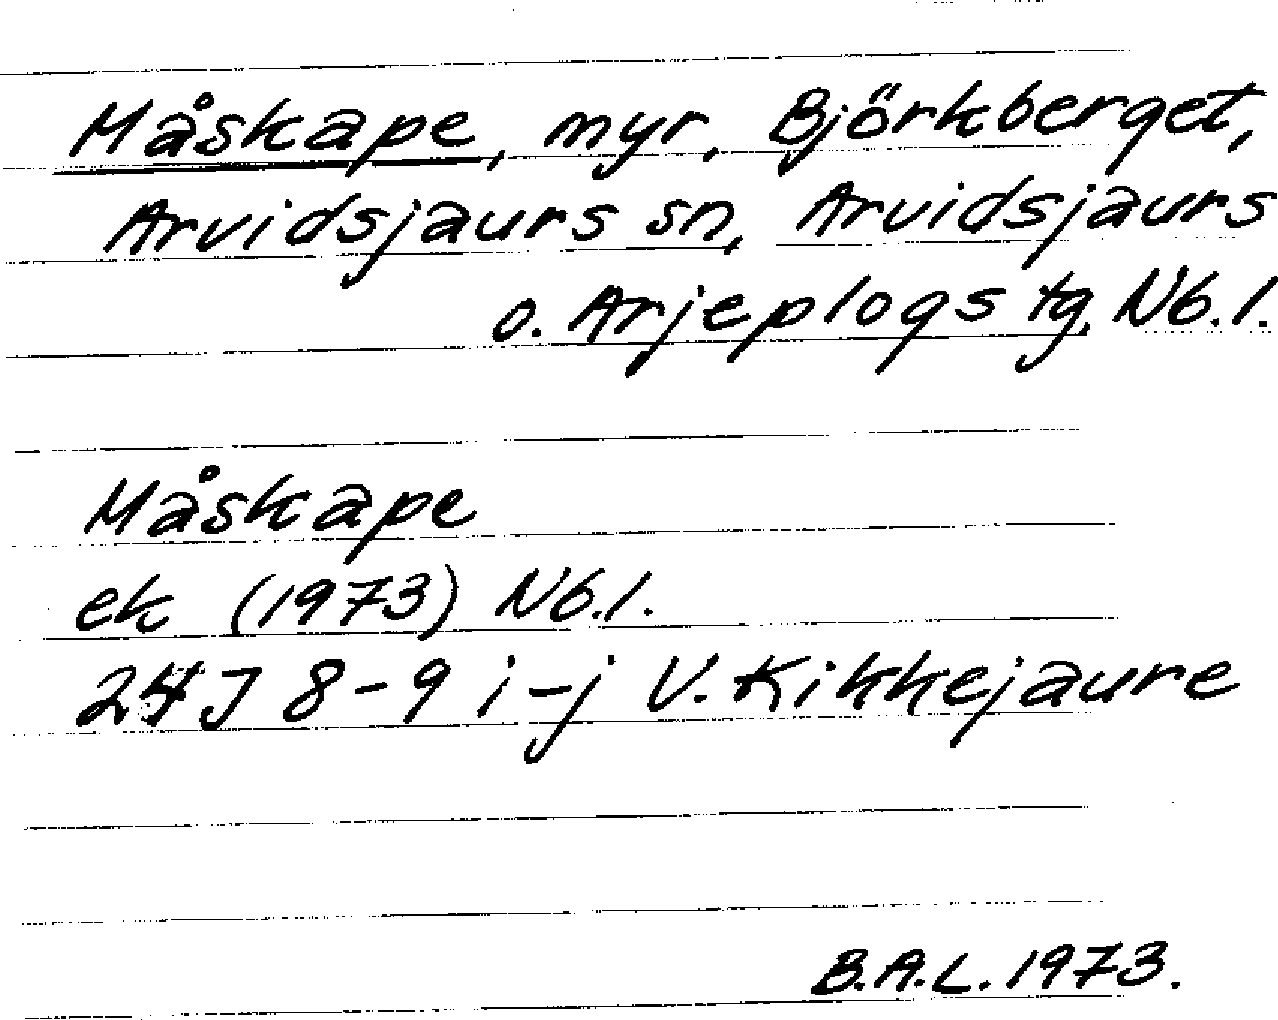 Måskape, myr, Björkberget,
Arvidsjaurs sn, Arvidsjaurs
o. Arjeplogs tg, Nb.l.
Måskape
ek (1973) Nb.l.
24J 8-9 i-j V. Kikkejaure
B.A.L. 1973.